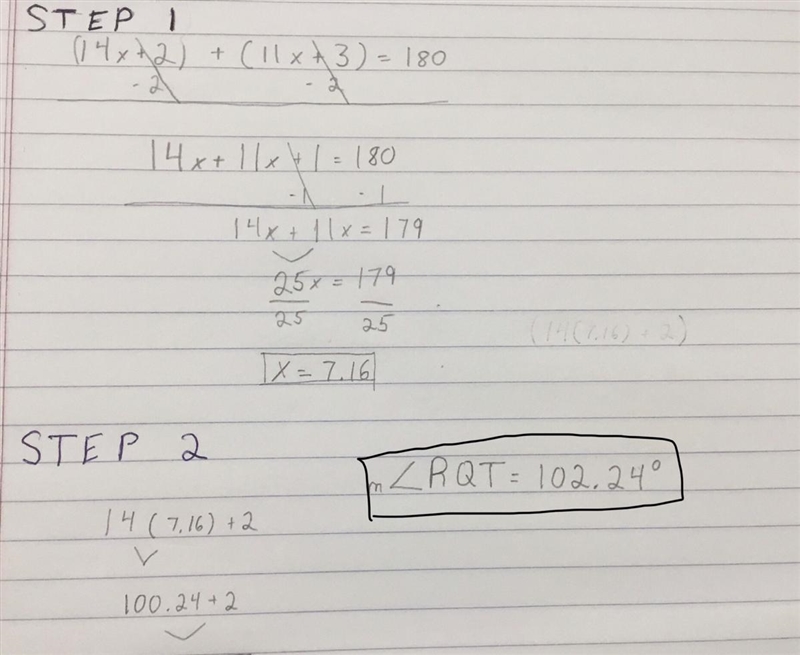 STEP 1
(14x+2) + (11x+3) = 180
-2 -2
14x + 11x +1 = 180
-1 -1
14x + 11x = 179
25x = 179
25 25
x = 7.16
(14(7.16) + 2)
STEP 2
m∠RQT = 102.24°
14(7.16) +2
100.24 + 2